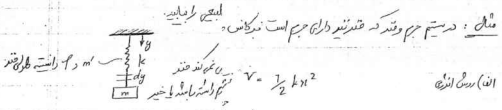 مثال : در سیستم جرم و فنر که فنر نیز دارای جرم است فرکانس
طبیعی را بیابید.
y
k
dy
m
m' و ρ دانسیته طولی فنر
فرقی نمی کند فنر
V = 1/2 k x²
جرم داشته باشد یا خیر
الف) روش انرژی